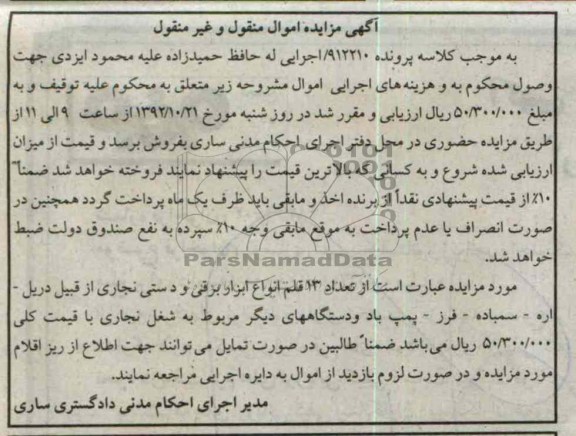 آگهی مزایده اموال منقول و غیر منقول
به موجب کلاسه پرونده ۹۱۲۲۱۰/اجرایی له حافظ حمیدزاده علیه محمود ایزدی جهت
وصول محکوم به و هزینه‌های اجرایی اموال مشروحه زیر متعلق به محکوم علیه توقیف و به
مبلغ ۵۰/۳۰۰/۰۰۰ ریال ارزیابی و مقرر شد در روز شنبه مورخ ۱۳۹۲/۱۰/۲۱ از ساعت ۹ الی ۱۱ از
طریق مزایده حضوری در محل دفتر اجرای احکام مدنی ساری بفروش برسد و قیمت از میزان
ارزیابی شده شروع و به کسانی که بالاترین قیمت را پیشنهاد نمایند فروخته خواهد شد ضمناً
۱۰٪ از قیمت پیشنهادی نقداً از برنده اخذ و مابقی باید ظرف یک ماه پرداخت گردد همچنین در
صورت انصراف یا عدم پرداخت به موقع مابقی وجه ۱۰٪ سپرده به نفع صندوق دولت ضبط
خواهد شد.
ParsNamadData
مورد مزایده عبارت است از تعداد ۱۳ قلم انواع ابزار برقی و دستی نجاری از قبیل دریل -
اره - سمباده - فرز - پمپ باد ودستگاههای دیگر مربوط به شغل نجاری با قیمت کلی
۵۰/۳۰۰/۰۰۰ ریال می‌باشد ضمناً طالبین در صورت تمایل می‌توانند جهت اطلاع از ریز اقلام
مورد مزایده و در صورت لزوم بازدید از اموال به دایره اجرایی مراجعه نمایند.
مدیر اجرای احکام مدنی دادگستری ساری